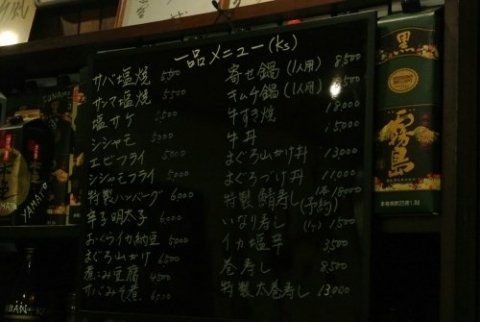 一品メニュー(Ks)
サバ塩焼
サンマ塩焼 5500
塩サケ
シシャモ 5000
エビフライ 5000
シシャモフライ 5000
特製ハンバーグ 6000
辛子明太子 6000
おくらイカ納豆 5000
まぐろ山かけ 6500
煮こみ豆腐 4500
サバみそ煮 6000
寄せ鍋(1人用) 8,500
キムチ鍋(1人用)
牛すき焼 18000
牛丼 15000
まぐろ山かけ丼 13,000
まぐろづけ丼 11,000
特製鯖寿し(予約)
いなり寿し 1500
イカ塩辛 3500
巻寿し 8,500
特製太巻寿し 13,000
黒
霧島
YAMATO